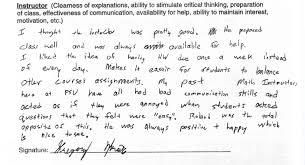 Instructor (Clearness of explanations, ability to stimulate critical thinking, preparation
of class, effectiveness of communication, availability for help, ability to maintain interest,
motivation, etc.)
I thought the instructor was pretty good. He prepared
class well and was always available for help.
I liked the idea of having HW due once a week instead
of every day. Makes it easier for students to balance
other courses assignments. My past Math Instructors
here at PSU have all had bad communication skills and
acted as if they were annoyed when students asked
questions that they felt were "easy". was the total
opposite of this. He was always positive + happy which
is nice to see.
Signature: